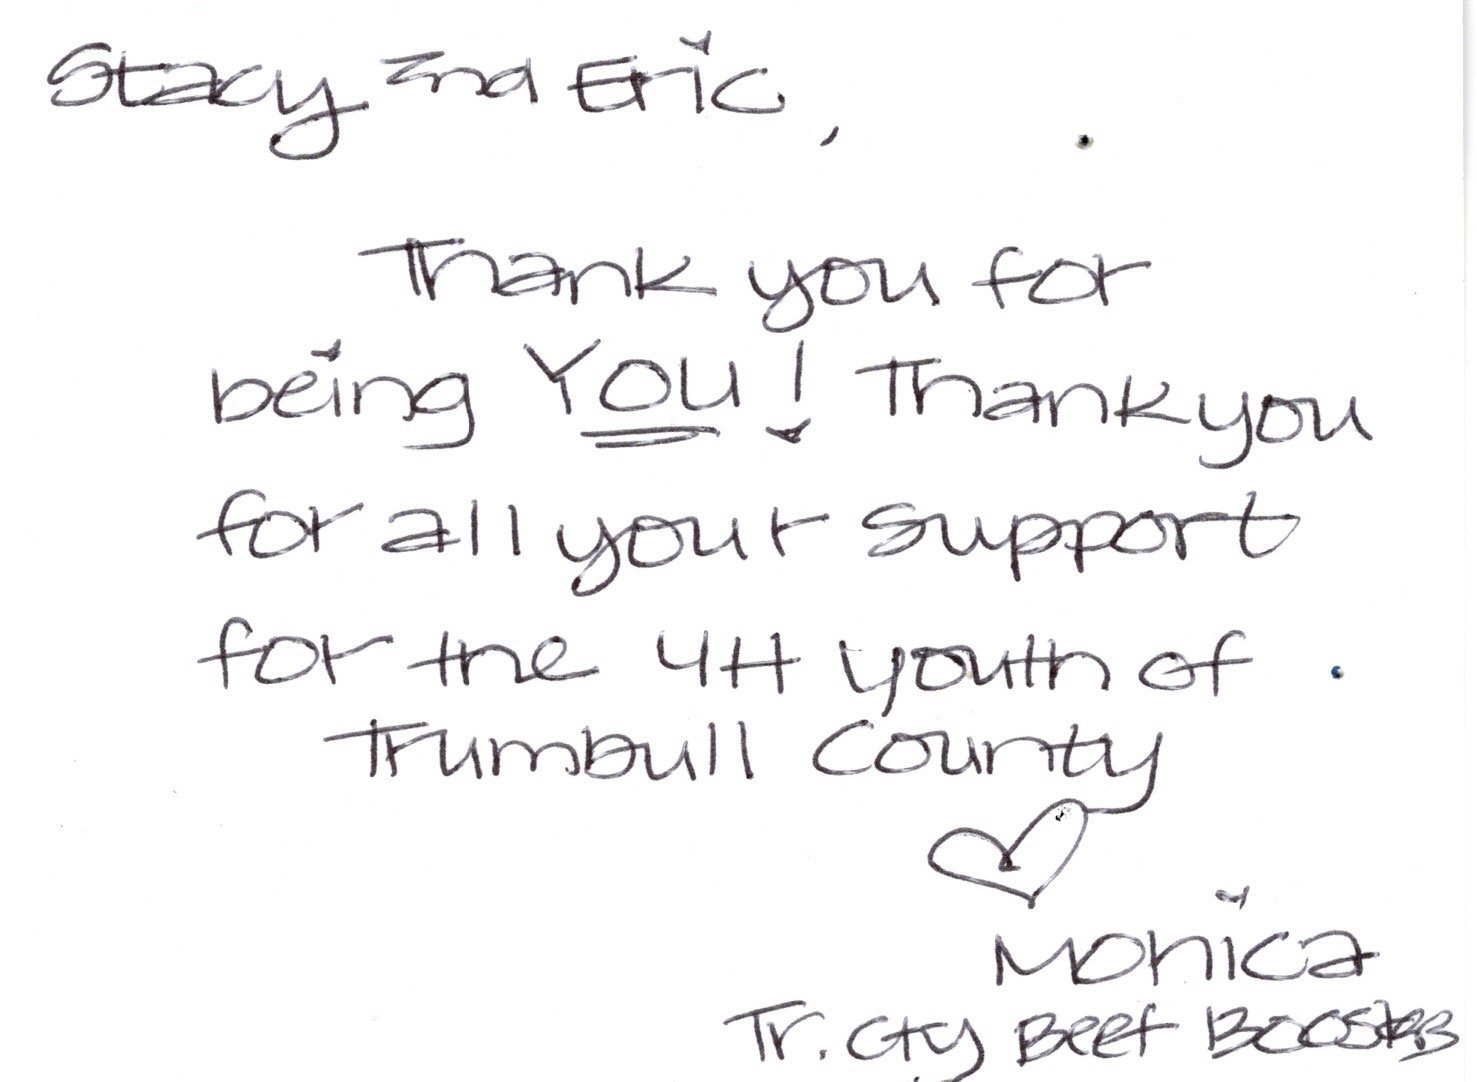 Stacy and Eric,
Thank you for
being YOU! Thank you
for all your support
for the 4H youth of
Trumbull County
Monica
Tr. Cty Beef Boosters